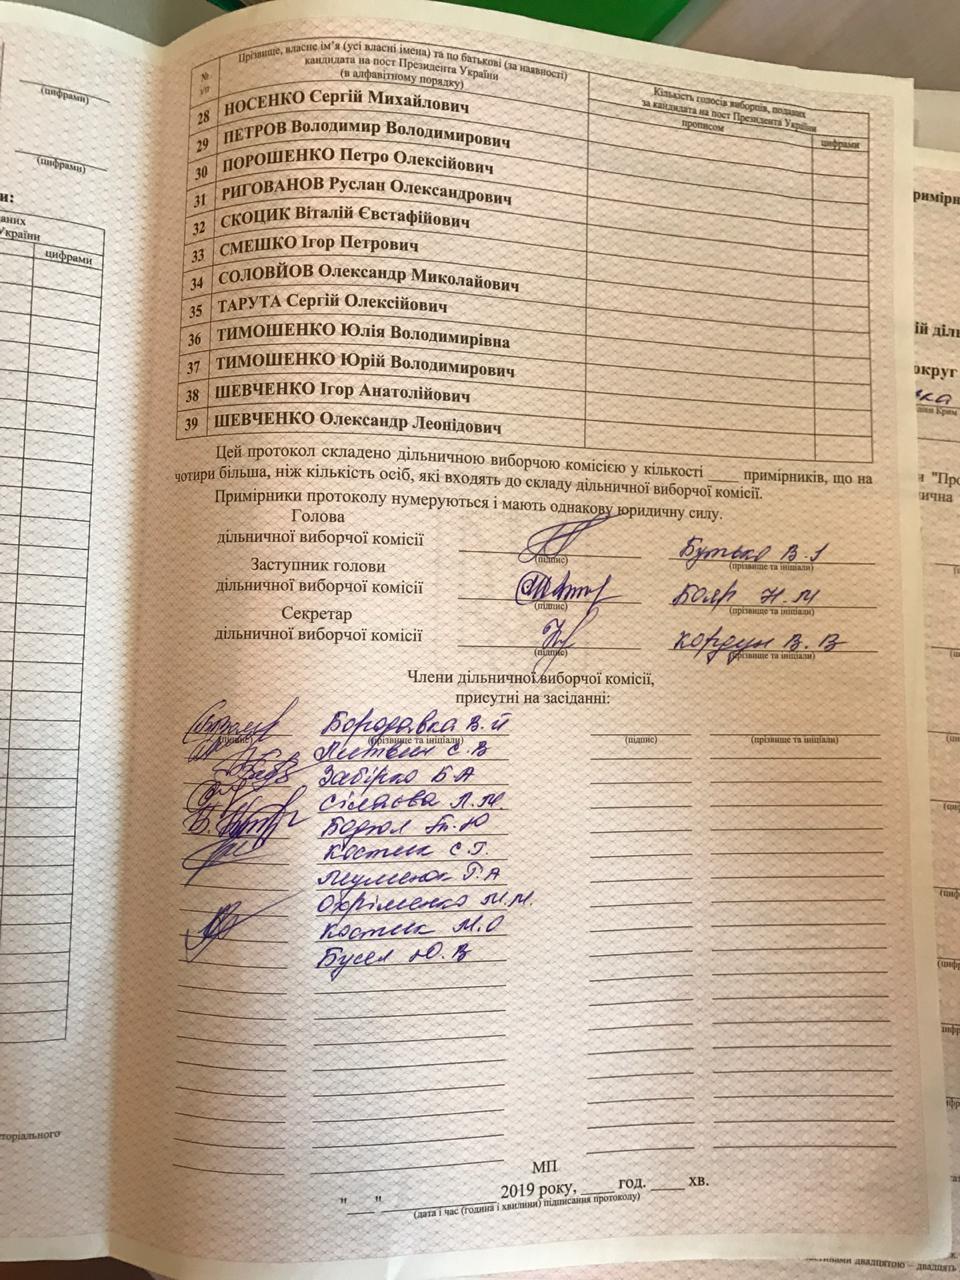 (цифрами)
(цифрами)
и:
аних
України
цифрами
№
з/п
Прізвище, власне ім'я (усі власні імена) та по батькові (за наявності)
кандидата на пост Президента України
(в алфавітному порядку)
Кількість голосів виборців, поданих
за кандидата на пост Президента України
прописом
цифрами
28 НОСЕНКО Сергій Михайлович
29 ПЕТРОВ Володимир Володимирович
30 ПОРОШЕНКО Петро Олексійович
31 РИГОВАНОВ Руслан Олександрович
32 СКОЦИК Віталій Євстафійович
33 СМЕШКО Ігор Петрович
34 СОЛОВЙОВ Олександр Миколайович
35 ТАРУТА Сергій Олексійович
36 ТИМОШЕНКО Юлія Володимирівна
37 ТИМОШЕНКО Юрій Володимирович
38 ШЕВЧЕНКО Ігор Анатолійович
39 ШЕВЧЕНКО Олександр Леонідович
Цей протокол складено дільничною виборчою комісією у кількості ____ примірників, що на
чотири більша, ніж кількість осіб, які входять до складу дільничної виборчої комісії.
Примірники протоколу нумеруються і мають однакову юридичну силу.
Голова
дільничної виборчої комісії
(підпис)
Бутько В.
(прізвище та ініціали)
Заступник голови
дільничної виборчої комісії
(підпис)
Бояр Н.М
(прізвище та ініціали)
Секретар
дільничної виборчої комісії
(підпис)
Кордун В.В
(прізвище та ініціали)
Члени дільничної виборчої комісії,
присутні на засіданні:
Бородавка В.Й
(підпис) (прізвище та ініціали) (підпис) (прізвище та ініціали)
Литвин С.В
Забірко Б.А
Л.М
Костюк С.Г.
Г.А
Охріменко М.М.
Костюк М.О
Бусел Ю.В
МП
"___"____________ 2019 року, ____ год. ____ хв.
(дата і час (година і хвилини) підписання протоколу)
торіального
примірн
ій діль
округ
"Про